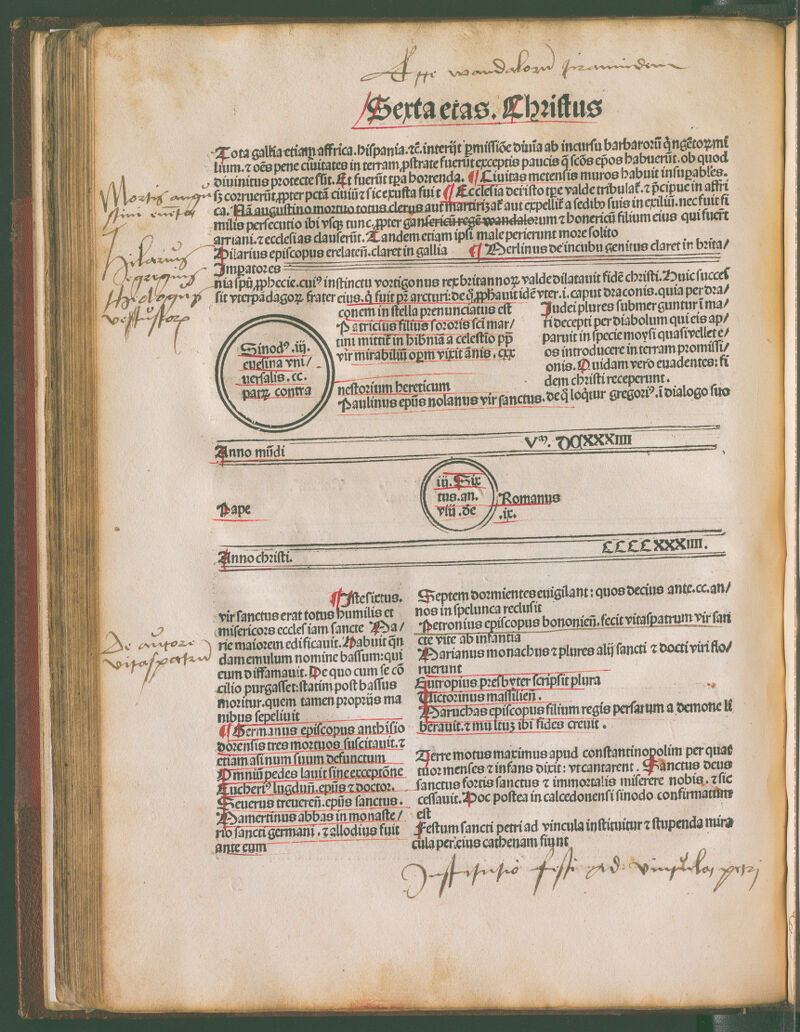 wandaloru
Sexta etas. Christus
Tota gallia etiam affrica. hispania. ⁊c̄. interijt p̱missiōe diuīa ab incursu barbarorū
lium. ⁊ oēs pene ciuitates in terram ꝓstrate fuerūt exceptis paucis q̄ scōs ep̄os habuerūt. ob quod
diuinitus protecte sūt. Et fuerūt tp̄a horrenda. ¶ Ciuitas metensis muros habuit insuꝑabiles.
corruerūt ꝓpter pctā ciuiū ⁊ sic exusta fuit ¶ Ecclesia dei isto tp̄e valde tribulaꝷ. ⁊ p̄cipue in affri
ca. Nā augustino mortuo totus clerus aut martirizaꝷ aut expellit᷑ a sedib᷒ suis in exiliū. nec fuit si
milis persecutio ibi vsq᷒ tunc. ꝓpter gansericū regē wandalorum ⁊ honericū filium eius qui fuerūt
arriani. ⁊ ecclesias clauserūt. Tandem etiam ip̄i male perierunt more solito
Hilarius episcopus erlateñ. claret in gallia ¶ Merlinus de incubu genitus claret in brita/
Imperatores
nia sp̄u ꝓphecie. cui᷒ instinctu vortigonus rex britannoꝝ valde dilatauit fidē christi. Huic succes
sit vterpādagoꝝ frater eius. q̄ fuit pr̄ arcturi: de q̄ ꝓphauit idē vter. i. caput draconis. quia per dra/
conem in stella prenunciatus est
Patricius filius sororis sci mar/
tini mittit᷑ in hibniā a celestio pp̄
vir mirabiliū opm̄ vixit ānis. cxx
Iudei plures submerguntur ī ma/
ri decepti per diabolum qui eis ap/
paruit in specie moysi quasi vellet e/
os introducere in terram promissi/
onis. Quidam vero euadentes: fi
dem christi receperunt.
Sinod᷒ .iij.
euesina vni/
uersalis. cc.
patꝝ contra
nestorium hereticum
Paulinus ep̄us nolanus vir sanctus. de q̄ loq̄tur gregori᷒. ī dialogo suo
Anno mūdi
Pape
iij. Six
tus. an.
viij. de
Romanus
.ix.
Anno christi.
CCCCXXXIIII.
¶ Iste sixtus.
vir sanctus erat totus humilis et
misericors ecclesiam sancte Ma/
rie maiorem edificauit. Habuit q̄n
dam emulum nomine bassum: qui
eum diffamauit. De quo cum se cō
cilio purgasset: statim post bassus
moritur. quem tamen proprijs ma
nibus sepeliuit
¶ Germanus episcopus anthisio
dorensis tres mortuos suscitauit. ⁊
etiam asinum suum defunctum
Omniū pedes lauit sine exceptōne
Eucheri᷒ lugduñ. ep̄us ⁊ doctor.
Seuerus treuereñ. ep̄us sanctus.
Mamertinus abbas in monaste/
rio sancti germani. ⁊ allodius fuit
ante eum
Septem dormientes euigilant: quos decius ante. cc. an/
nos in spelunca reclusit
Petronius episcopus bononieñ. fecit vitaspatrum vir san
cte vite ab infantia
Marianus monachus ⁊ plures alij sancti ⁊ docti viri flo/
ruerunt
Eutropius presbyter scripsit plura
Victorinus massilieñ.
Maruchas episcopus filium regis persarum a demone li
berauit. ⁊ multuꝫ ibi fides creuit.
Terre motus maximus apud constantinopolim per quat
tuor menses ⁊ infans dixit: vt cantarent. Sanctus deus
sanctus fortis sanctus ⁊ immortalis miserere nobis. ⁊ sic
cessauit. Hoc postea in calcedonensi sinodo confirmatum
est
Festum sancti petri ad vincula instituitur ⁊ stupenda mira
cula per eius cathenam fiunt
Institutio festi ad vincula petri
Mortis augu
stini
Hilarius
egregius
theologus
De autore
vitaspatrū